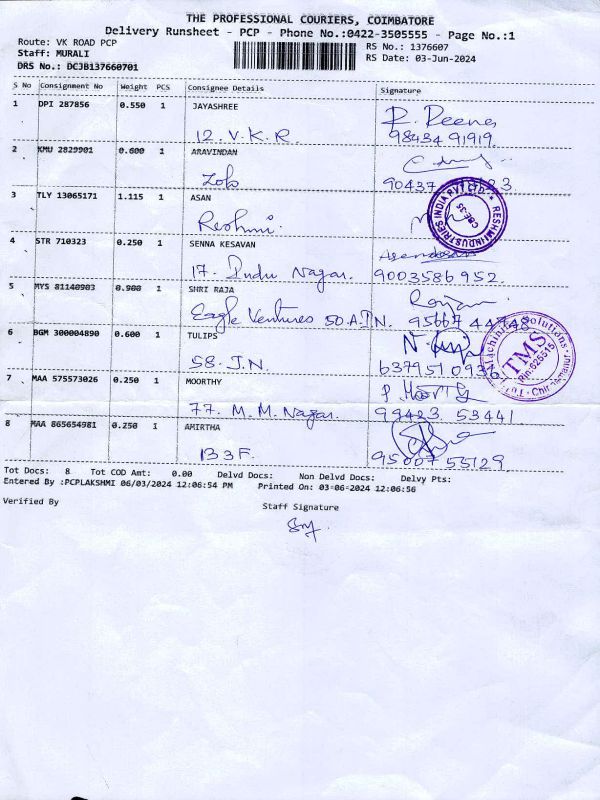 THE PROFESSIONAL COURIERS, COIMBATORE
Delivery Runsheet - PCP - Phone No.:0422-3505555 - Page No.:1
Route: VK ROAD PCP
Staff: MURALI
DRS No.: DCJB137660701
RS No.: 1376607
RS Date: 03-Jun-2024
S No Consignment No Weight PCS Consignee Details Signature
1 DPI 287856 0.550 1 JAYASHREE R. Reena
12. V.K.R. 98434 91919
2 KMU 2829901 0.600 1 ARAVINDAN
Zolo 90437
3 TLY 13065171 1.115 1 ASAN
Reshmi.
RESHMI INDUSTRIES INDIA PVT LTD
CBE-35
4 STR 710323 0.250 1 SENNA KESAVAN
17. Indu Nagar. 9003586952
5 MYS 81140903 0.900 1 SHRI RAJA
Eagle Ventures 50 A.T.N. 95667 44748
6 BGM 300004890 0.600 1 TULIPS
58. J.N. 637951093
TMS
Solutions
7 MAA 575573026 0.250 1 MOORTHY P. Moorthy
77. M.M. Nagar. 99423 53441
8 MAA 865654981 0.250 1 AMIRTHA
B3F. 95007 55129
Tot Docs: 8 Tot COD Amt: 0.00 Delvd Docs: Non Delvd Docs: Delvy Pts:
Entered By :PCPLAKSHMI 06/03/2024 12:06:54 PM Printed On: 03-06-2024 12:06:56
Verified By
Staff Signature